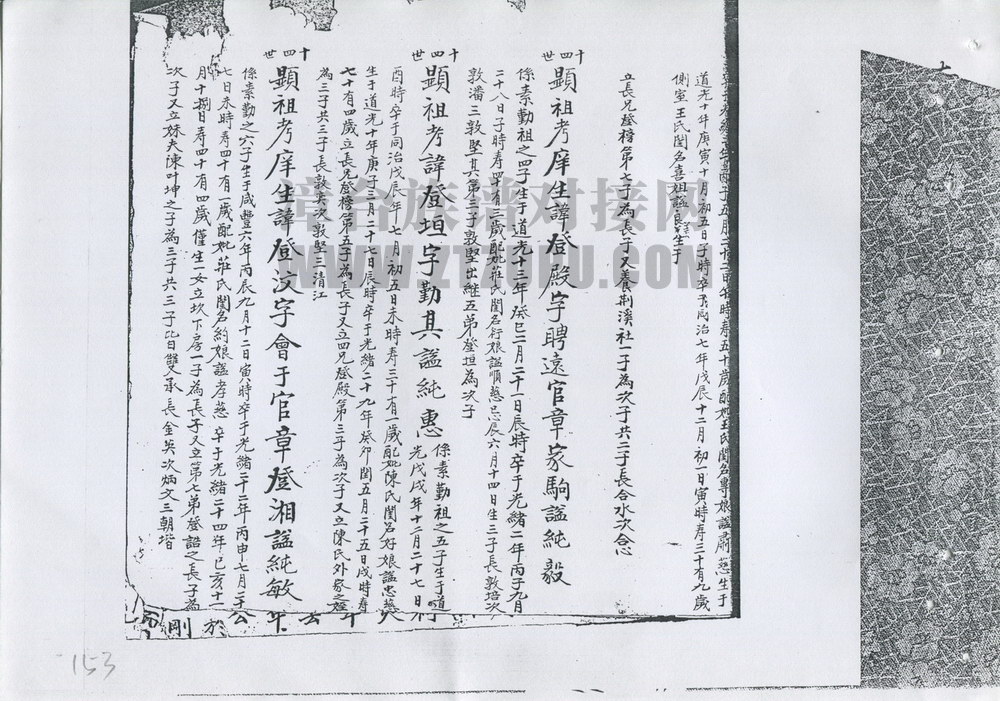 道光十年庚寅十月初五日子時卒于同治七年戊辰十二月初一日寅時寿三十有九歲
側室王氏閏名喜姐謚良 生于
立長兄登榜第七子為長子又養荆溪社一子為次子共二子長合水次合心
十四世
顯祖考庠生諱登殿字聘遠官章家駒謚純毅
係素勤祖之四子生于道光十三年癸巳二月二十一日辰時卒于光緒二年丙子九月
二十八日子時寿四十有二歲配妣莊氏閏名行娘謚順慈忌辰六月十四日生三子長敦培次
敦潘三敦堅其第三子敦堅出継五弟登垣為次子
十四世
顯祖考諱登垣字勤其謚純惠
係素勤祖之五子生于道
光戊戌年十二月二十七日
酉時卒于同治戊辰年七月初五日未時寿三十有一歲配妣陳氏閏名好娘謚忠慈
生于道光十年庚子三月二十七日辰時卒于光緒二十九年癸卯閏五月二十五日戌時寿
七十有四歲立長兄登榜第五子為長子又立四兄登殿第三子為次子又立陳氏外祭之姪
為三子共三子長敦英次敦堅三清江
十四世
顯祖考庠生諱登汶字會于官章登湘謚純敏
係素勤之六子生于咸豐六年丙辰九月十二日寅時卒于光緒二十二年丙申七月二十
七日未時寿四十有一歲配妣莊氏閏名約娘謚孝慈卒于光緒二十四年己亥十一
月十捌日寿四十有四歲僅生一女立坎下房一子為長子又立第七弟登諧之長子為
次子又立妹夫陳叶坤之子為三子共三子比皆雙承長金英次炳文三朝堦
於剛
153
漳台族谱对接网
WWW.ZTZUPU.COM